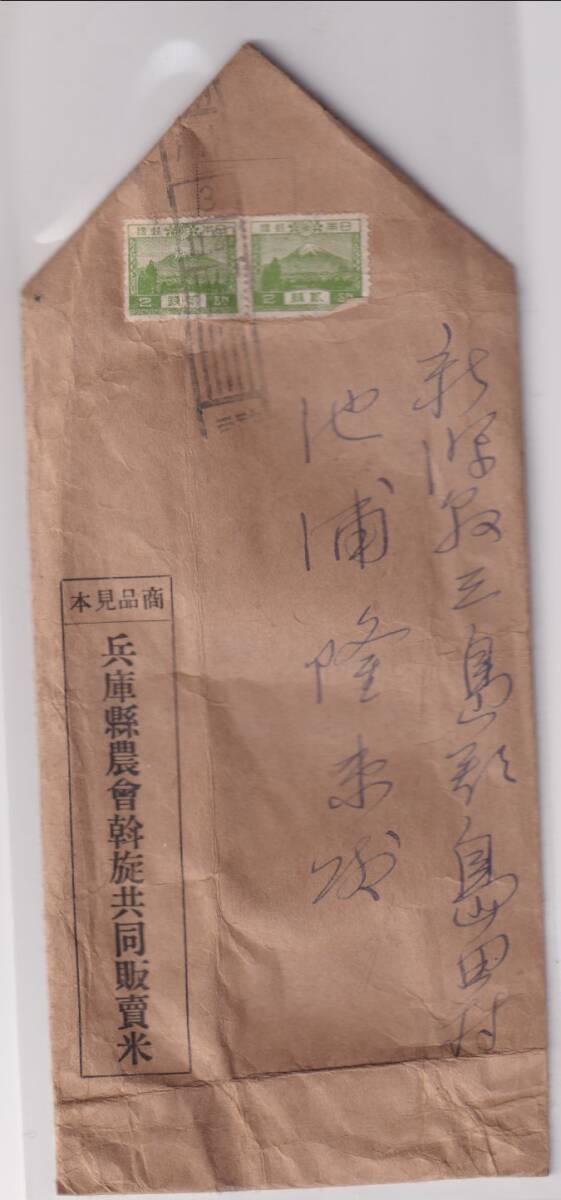 日本郵便
日本郵便
2 貳錢
2 貳錢
3
新潟縣三島郡島田村
池浦隆 殿
商品見本
兵庫縣農會斡旋共同販賣米